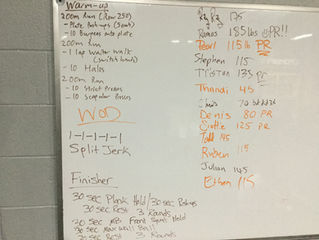 Warm-up
200m Run (Row 250)
- Plate
- 10 Burpees onto plate
200m Run
- 1 lap Waiter Walk
(switch hands)
- 10 Halos
200m Run
- 10 Strict Presses
- 10 Scapular
WOD
1-1-1-1-1
Split Jerk
Finisher
30 sec Plank Hold/30 sec
30 sec Rest 3 Rounds
30 sec Front Squat Hold
30 sec Wall Ball
30 sec Rest 3 Rounds
175
185lbs PR!!
Pearl 115lb PR
Stephen 115
Tristan 135 PR
Thandi 45
Chris 70
Denis 80 PR
125 PR
Todd 145
Ruben 115
Julian 145
Ethan 115